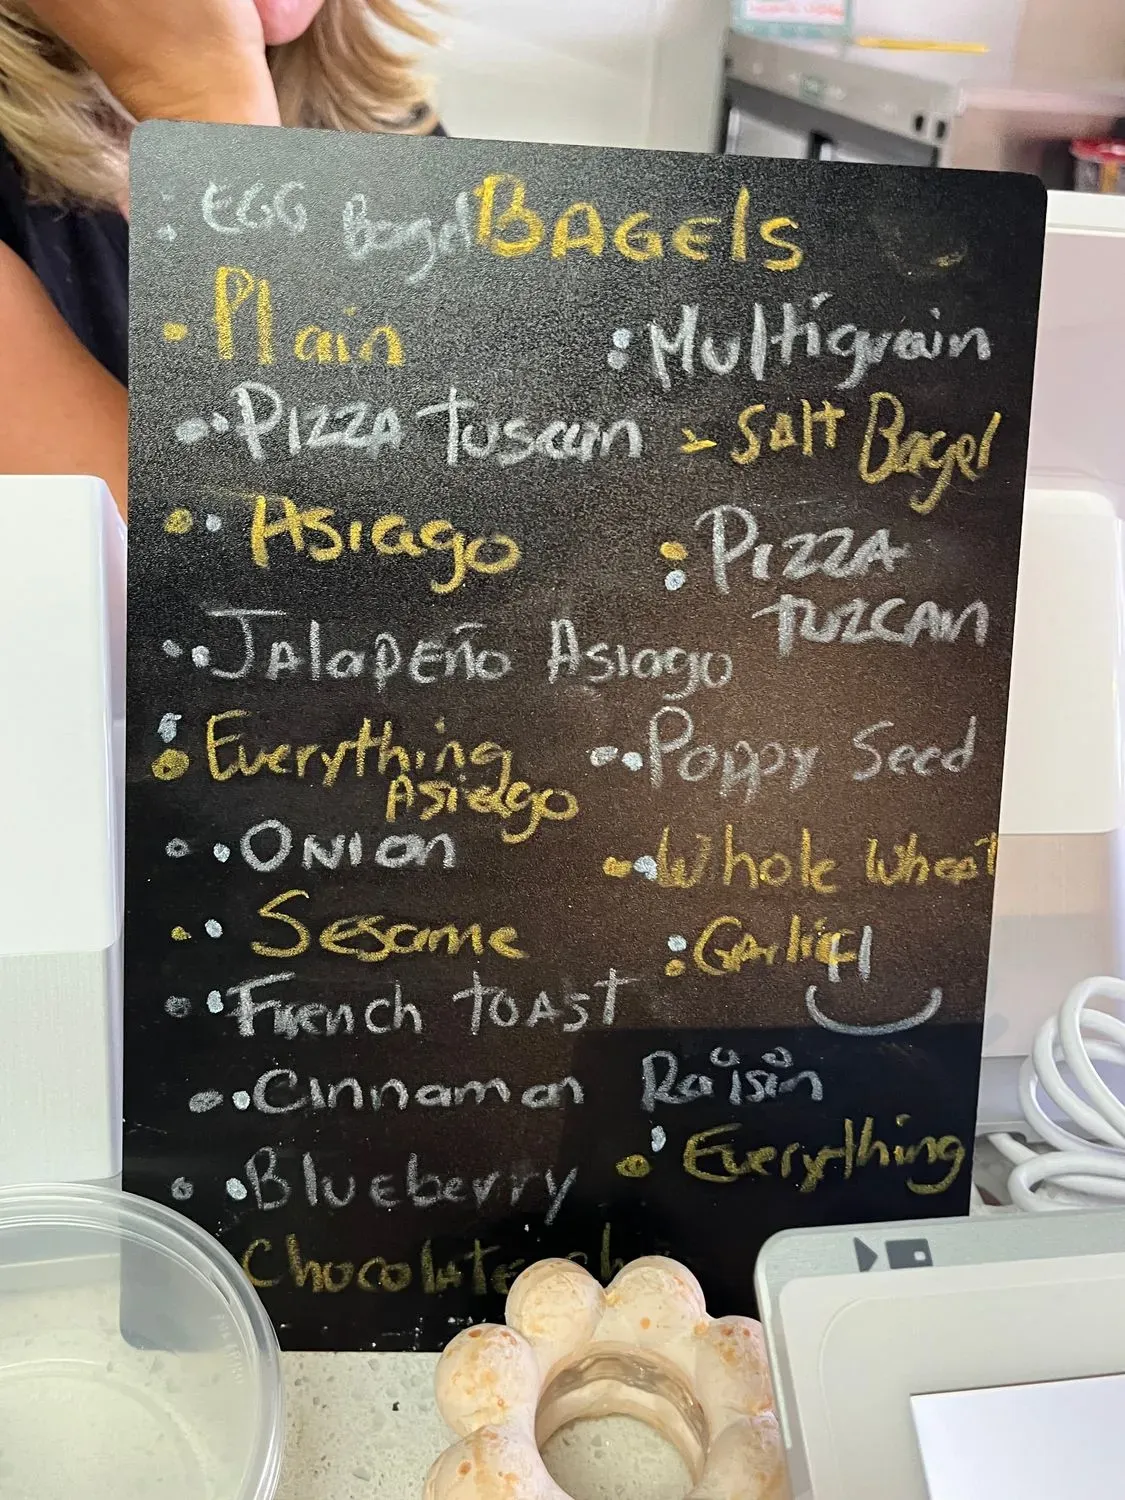 EGG Bagel
BAGEls
Plain
Pizza Tuscan
Asiago
Jalapeño Asiago
Everything
Asiago
Onion
Sesame
French Toast
Cinnamon Raisin
Blueberry
Chocolate ch
Multigrain
Salt Bagel
Pizza
Tuzcan
Poppy Seed
Whole Wheat
Garlic
Everything